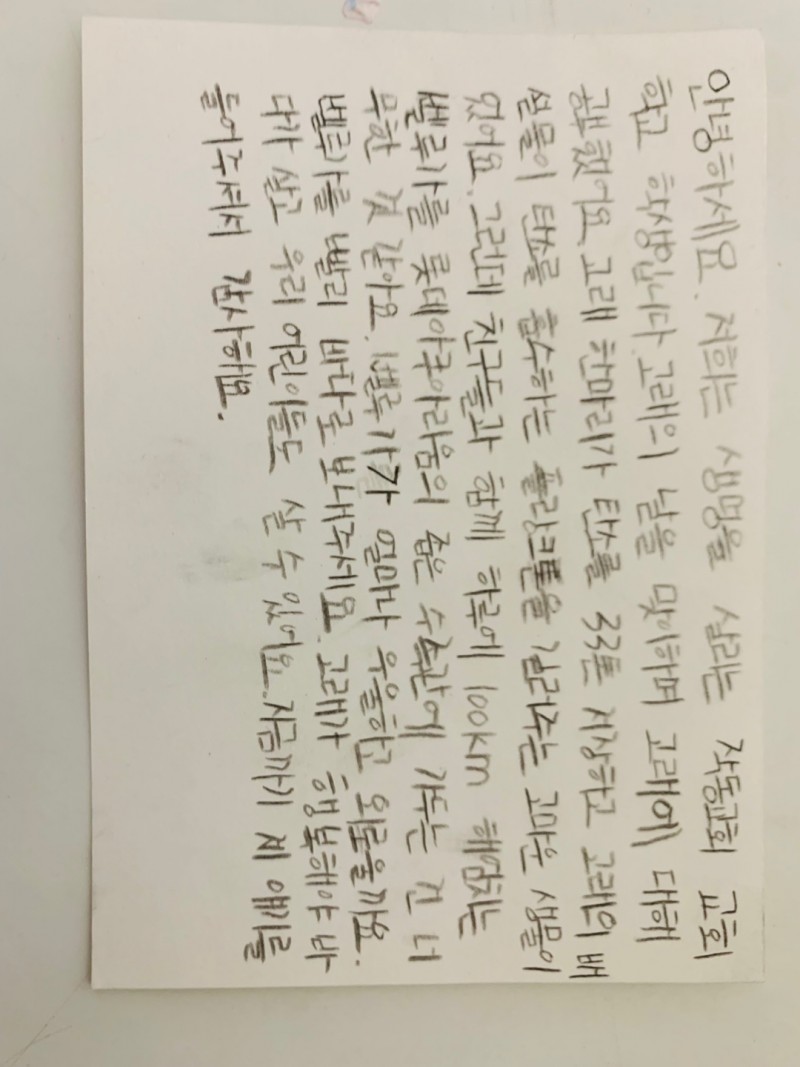 안녕하세요. 저희는 생명을 살리는 작동교회 교회
학교 학생입니다. 고래의 날을 맞이하며 고래에 대해
공부했어요. 고래 한마리가 탄소를 33톤 저장하고 고래의 배
설물이 탄소를 흡수하는 플랑크톤을 길러주는 고마운 생물이
었어요. 그런데 친구들과 함께 하루에 100km 헤엄치는
벨루가를 롯데아쿠아리움의 좁은 수족관에 가두는 건 너
무한 것 같아요. 벨루가가 얼마나 우울하고 외로울까요.
벨루가를 빨리 바다로 보내주세요. 고래가 행복해야 바
다가 살고 우리 어린이들도 살 수 있어요. 지금까지 제 얘기를
들어주셔서 감사해요.